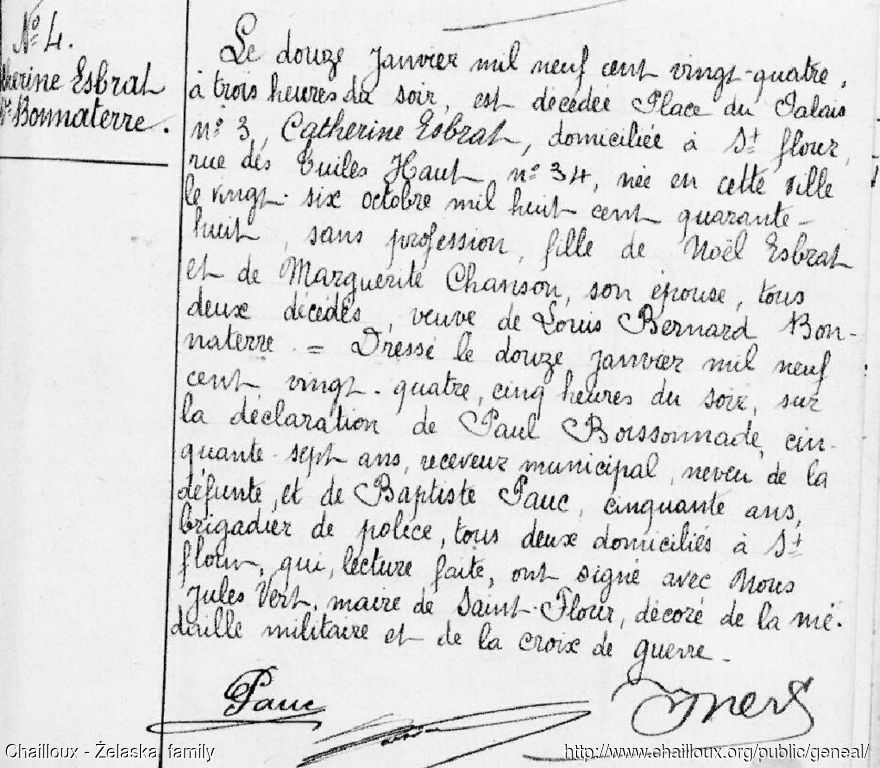 N° 4.
therine Esbrat
Vve Bonnaterre.
Le douze janvier mil neuf cent vingt-quatre,
à trois heures du soir, est décédée Place du Palais
n° 3, Catherine Esbrat, domiciliée à St flour,
rue des Tuiles Haut, n° 34, née en cette ville
le vingt-six octobre mil huit cent quarante-
huit, sans profession, fille de Noël Esbrat
et de Marguerite Chanson, son épouse, tous
deux décédés, veuve de Louis Bernard Bon-
naterre. = Dressé le douze janvier mil neuf
cent vingt-quatre, cinq heures du soir, sur
la déclaration de Paul Boissonnade, cin-
quante-sept ans, receveur municipal, neveu de la
défunte, et de Baptiste Pauc, cinquante ans,
brigadier de police, tous deux domiciliés à St
flour, qui, lecture faite, ont signé avec Nous
Jules Vert, maire de Saint-Flour, décoré de la mé-
daille militaire et de la croix de guerre.
Pauc
Chailloux - Želaska family
http://www.chailloux.org/public/geneal/